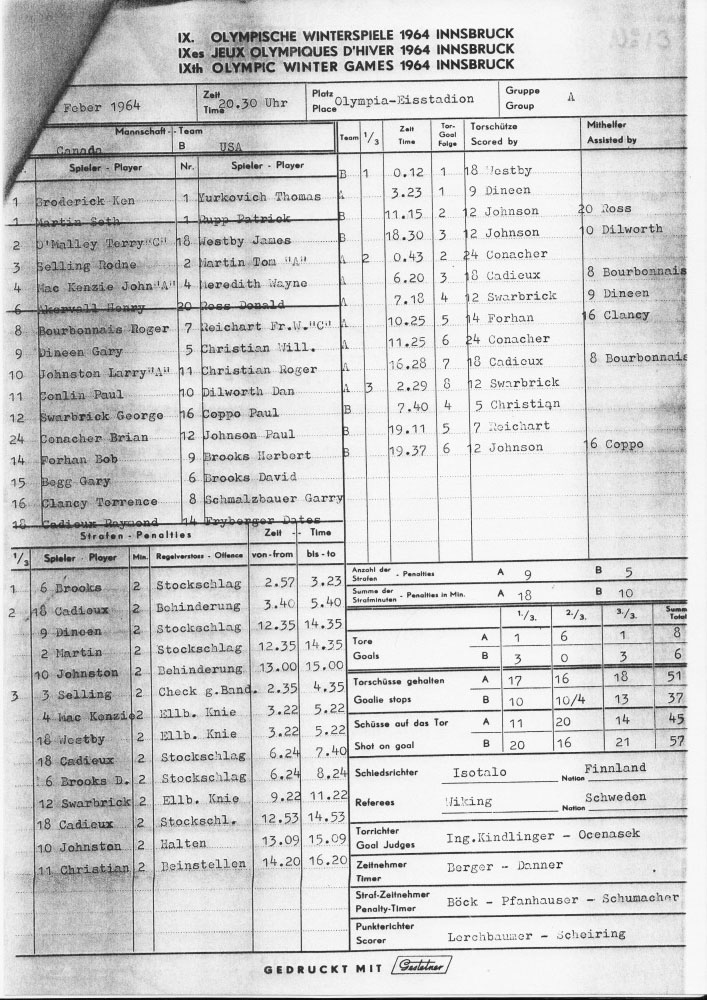 IX. OLYMPISCHE WINTERSPIELE 1964 INNSBRUCK
IXes JEUX OLYMPIQUES D'HIVER 1964 INNSBRUCK
IXth OLYMPIC WINTER GAMES 1964 INNSBRUCK
Feber 1964 Zeit Time 20.30 Uhr Platz Place Olympia-Eisstadion Gruppe Group A
Mannschaft - Team
Canada B USA
Team 1/3 Zeit Time Tor- Goal Folge Torschütze Scored by Mithelfer Assisted by
Spieler - Player Nr. Spieler - Player
B 1 0.12 1 18 Westby
A 3.23 1 9 Dineen
B 11.15 2 12 Johnson 20 Ross
B 18.30 3 12 Johnson 10 Dilworth
A 2 0.43 2 24 Conacher
A 6.20 3 18 Cadieux 8 Bourbonnais
A 7.18 4 12 Swarbrick 9 Dineen
A 10.25 5 14 Forhan 16 Clancy
A 11.25 6 24 Conacher
A 16.28 7 18 Cadieux 8 Bourbonnais
A 3 2.29 8 12 Swarbrick
B 7.40 4 5 Christian
B 19.11 5 7 Reichart
B 19.37 6 12 Johnson 16 Coppo
1 Broderick Ken 1 Yurkovich Thomas
1 Martin Seth 1 Rupp Patrick
2 O'Malley Terry"C" 18 Westby James
3 Selling Rodne 2 Martin Tom "A"
4 Mac Kenzie John"A" 4 Meredith Wayne
6 Akervall Henry 20 Ross Donald
8 Bourbonnais Roger 7 Reichart Fr.W."C"
9 Dineen Gary 5 Christian Will.
10 Johnston Larry"A" 11 Christian Roger
11 Conlin Paul 10 Dilworth Dan
12 Swarbrick George 16 Coppo Paul
24 Conacher Brian 12 Johnson Paul
14 Forhan Bob 9 Brooks Herbert
15 Begg Gary 6 Brooks David
16 Clancy Terrence 8 Schmalzbauer Garry
18 Cadieux Raymond 14 Fryberger Dates
Strafen - Penalties Zeit -- Time
1/3 Spieler - Player Min. Regelverstoss - Offence von-from bis-to
1 6 Brooks 2 Stockschlag 2.57 3.23
2 18 Cadieux 2 Behinderung 3.40 5.40
9 Dineen 2 Stockschlag 12.35 14.35
2 Martin 2 Stockschlag 12.35 14.35
10 Johnston 2 Behinderung 13.00 15.00
3 3 Selling 2 Check g.Band. 2.35 4.35
4 Mac Kenzie 2 Ellb. Knie 3.22 5.22
18 Westby 2 Ellb. Knie 3.22 5.22
18 Cadieux 2 Stockschlag 6.24 7.40
6 Brooks D. 2 Stockschlag 6.24 8.24
12 Swarbrick 2 Ellb. Knie 9.22 11.22
18 Cadieux 2 Stockschl. 12.53 14.53
10 Johnston 2 Halten 13.09 15.09
11 Christian 2 Beinstellen 14.20 16.20
Anzahl der Strafen - Penalties A 9 B 5
Summe der Strafminuten - Penalties in Min. A 18 B 10
1./3. 2./3. 3./3. Summe Total
Tore A 1 6 1 8
Goals B 3 0 3 6
Torschüsse gehalten A 17 16 18 51
Goalie stops B 10 10/4 13 37
Schüsse auf das Tor A 11 20 14 45
Shot on goal B 20 16 21 57
Schiedsrichter Isotalo Nation Finnland
Referees Wiking Nation Schweden
Torrichter
Goal Judges Ing.Kindlinger - Ocenasek
Zeitnehmer
Timer Berger - Danner
Straf-Zeitnehmer
Penalty-Timer Böck - Pfanhauser - Schumacher
Punkterichter
Scorer Lerchbaumer - Scheiring
GEDRUCKT MIT Gestetner